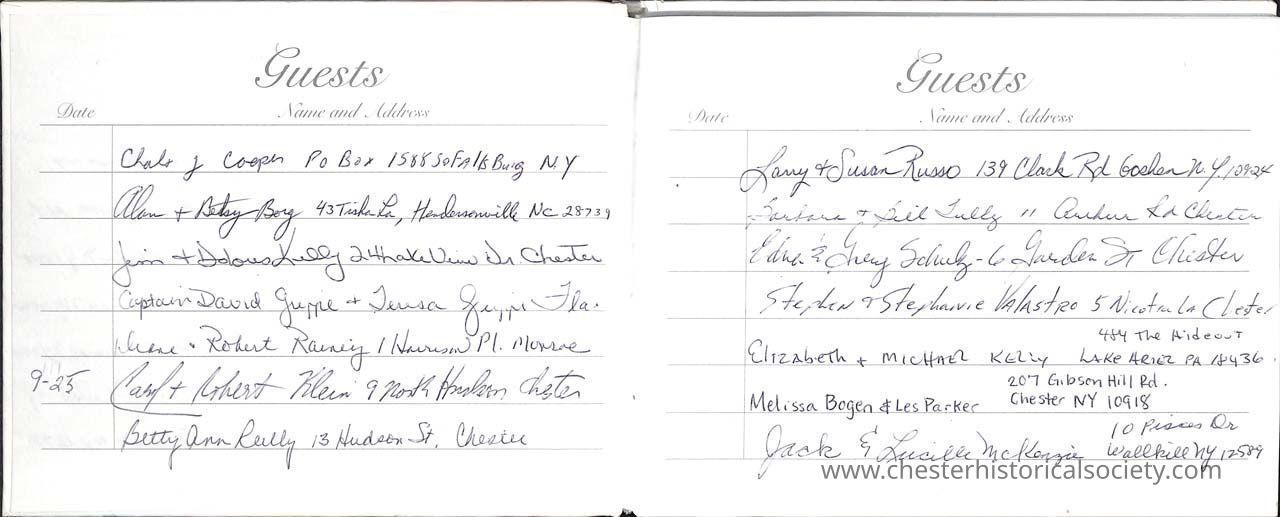 Guests
Date Name and Address
J Cooper PO Box 1588 NY
Alan + Betsy Borg 43 Tisha La, Hendersonville NC 28739
Jim + Dolores Kelly 24 Lake View Dr. Chester
Captain David + Teresa Fla.
Diane + Robert Rainey 1 Harrison Pl. Monroe
9-25 Caryl + Robert Klein 9 North Hudson Chester
Betty Ann Reilly 13 Hudson St, Chester
Guests
Date Name and Address
Larry + Susan Russo 139 Clark Rd Goshen N.Y. 10924
Barbara + Bill Tully 11 Rd Chester
Edna & Greg Schulz - 6 Garden St Chester
Stephen & Stephanie Valastro 5 La Chester
484 The Hideout
Elizabeth + Michael Kelly Lake Ariel PA 18436.
207 Gibson Hill Rd.
Melissa Bogen & Les Parker Chester NY 10918
10 Pisces Dr
Jack & Lucille McKenzie Wallkill NY 12589
www.chesterhistoricalsociety.com